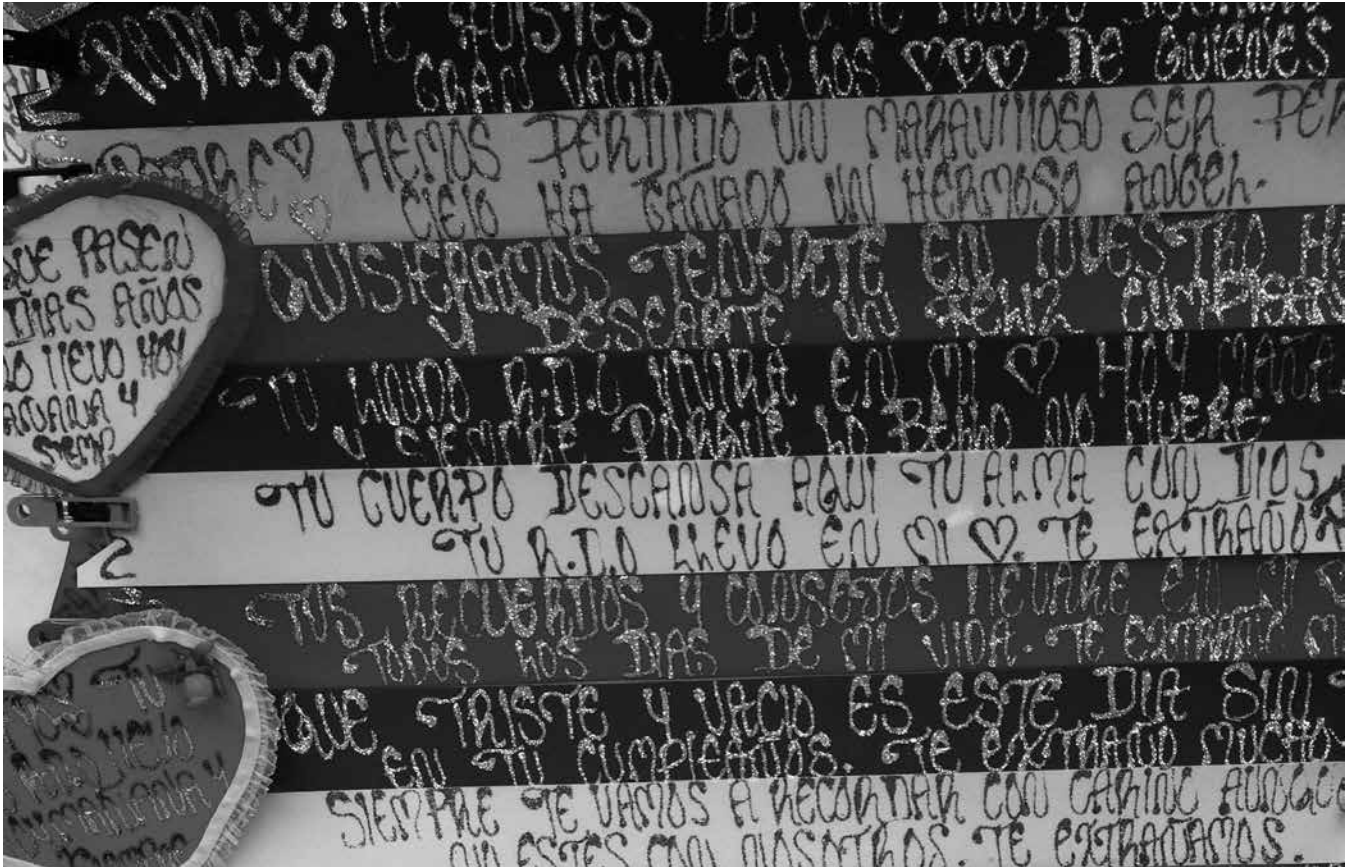 PADRE ♡ TE FUISTES DE ESTE MUNDO
GRAN VACIO EN LOS ♡♡♡ DE QUIENES
PADRE ♡ HEMOS PERDIDO UN MARAVILLOSO SER PER
CIELO HA GANADO UN HERMOSO ANGEL.
QUISIERAMOS TENERTE EN NUESTRO HO
Y DESEARTE UN FELIZ CUMPLEAÑ
TU LINDO R.D.C VIVIRA EN MI ♡ HOY MAÑA
Y SIEMPRE PORQUE LO BELLO NO MUERE
TU CUERPO DESCANSA AQUI TU ALMA CON DIOS
TU R.D.O LLEVO EN MI ♡. TE EXTRAÑO
TUS RECUERDOS Y CONSEJOS LLEVARE EN MI ♡
TODOS LOS DIAS DE MI VIDA. TE EXTRAÑO M
QUE TRISTE Y VACIO ES ESTE DIA SIN T
EN TU CUMPLEAÑOS. TE EXTRAÑO MUCHO
SIEMPRE TE VAMOS A RECORDAR CON CARIÑO AUNQUE
NO ESTES CON NOSOTROS. TE EXTRAÑAMOS.
QUE PASEN
DIAS AÑOS
LO LLEVO HOY
MAÑANA Y
SIEMP
TU
LLEVO
HOY MAÑANA Y
SIEMPRE